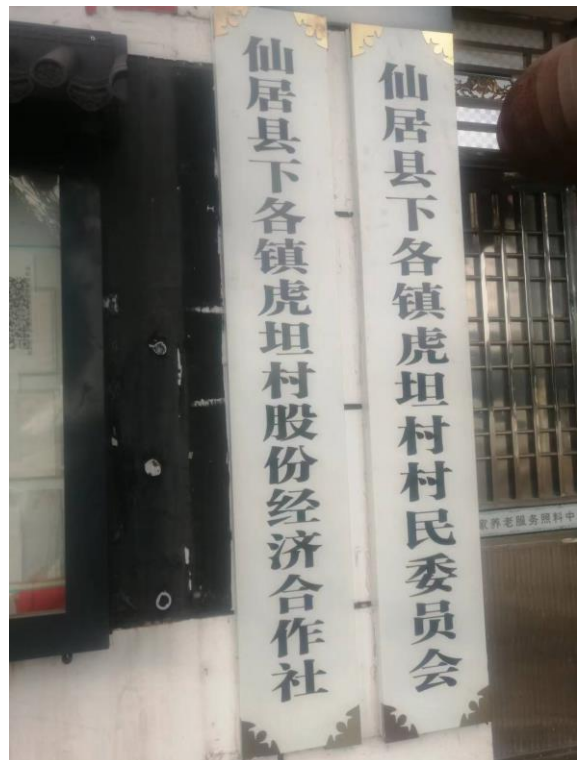 仙居县下各镇虎坦村股份经济合作社
仙居县下各镇虎坦村村民委员会
家养老服务照料中